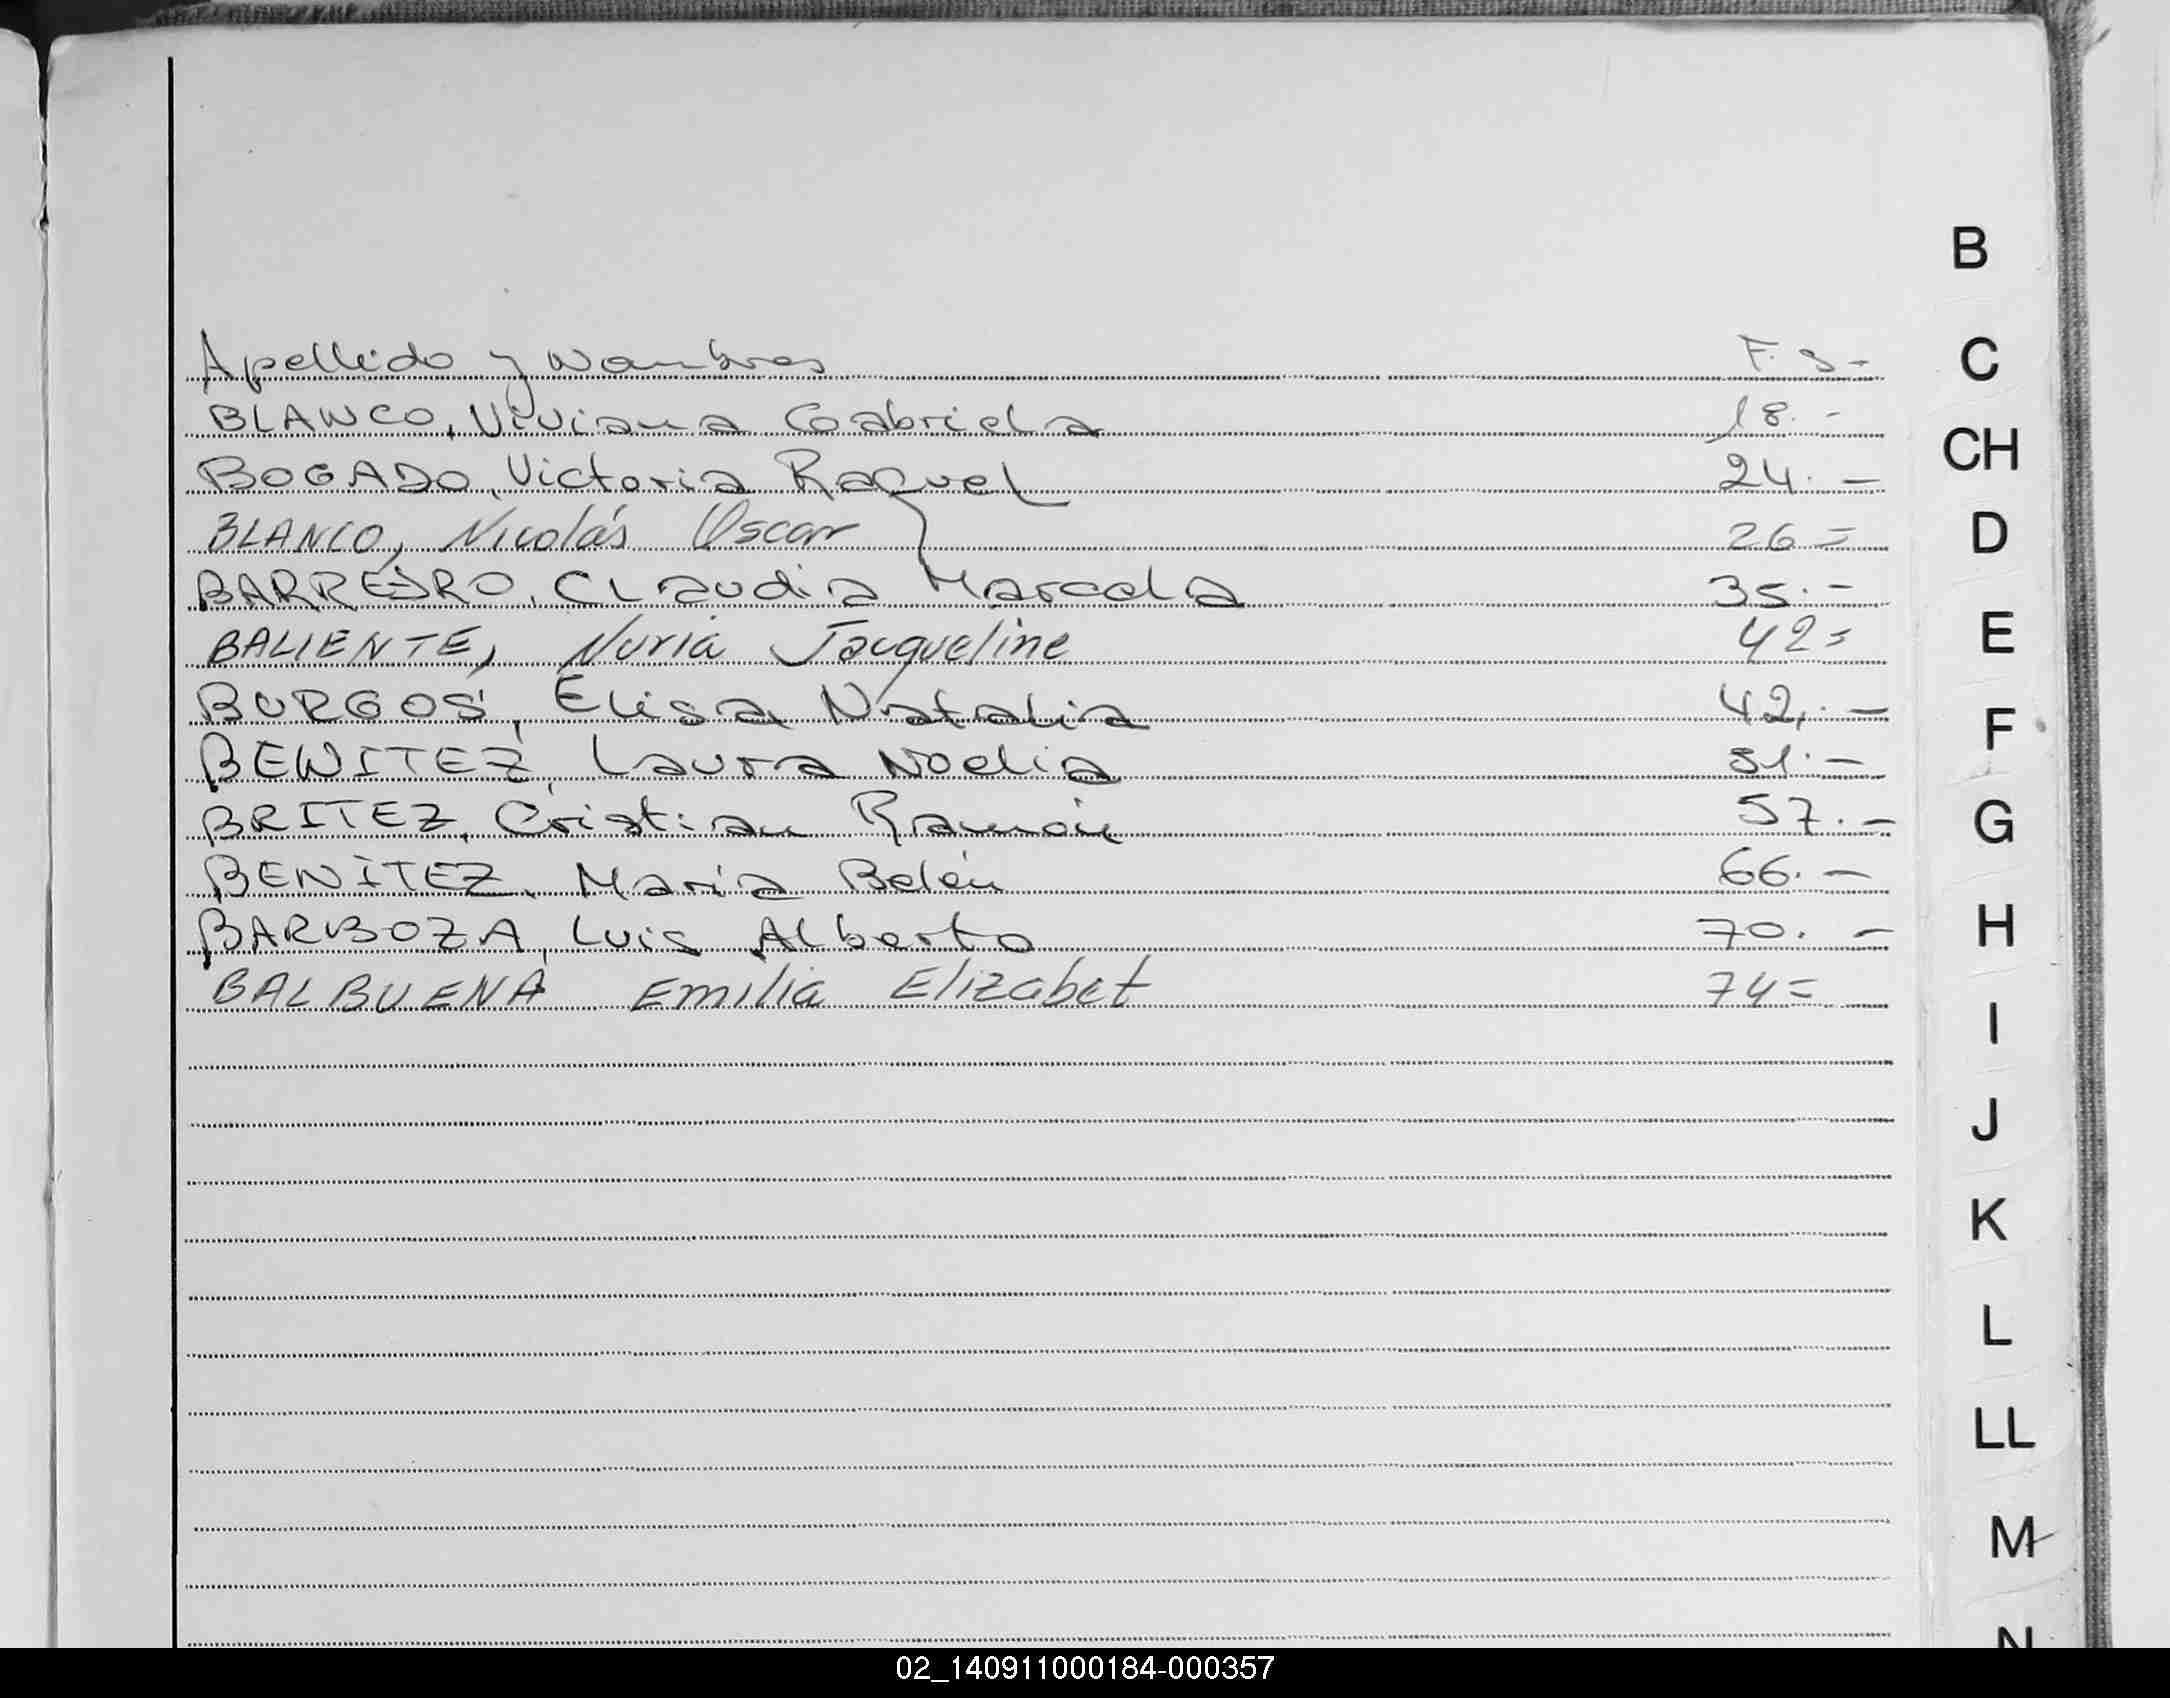 B
C
Apellido y Nombres F. S -
BLANCO, Viviana Gabriela 18. -
CH
BOGADO, Victoria Raquel 24. -
BLANCO, Nicolás Oscar 26 =
D
BARREIRO, Claudia Marcela 35. -
BALIENTE, Nuria Jacqueline 42 =
E
BURGOS, Elisa Natalia 42. -
F
BENITEZ, Laura Noelia 51. -
BRITEZ, Cristian Ramón 57. -
G
BENITEZ, María Belén 66. -
BARBOZA, Luis Alberto 70. -
H
BALBUENA Emilia Elizabet 74 =
I
J
K
L
LL
M
N
02_140911000184-000357